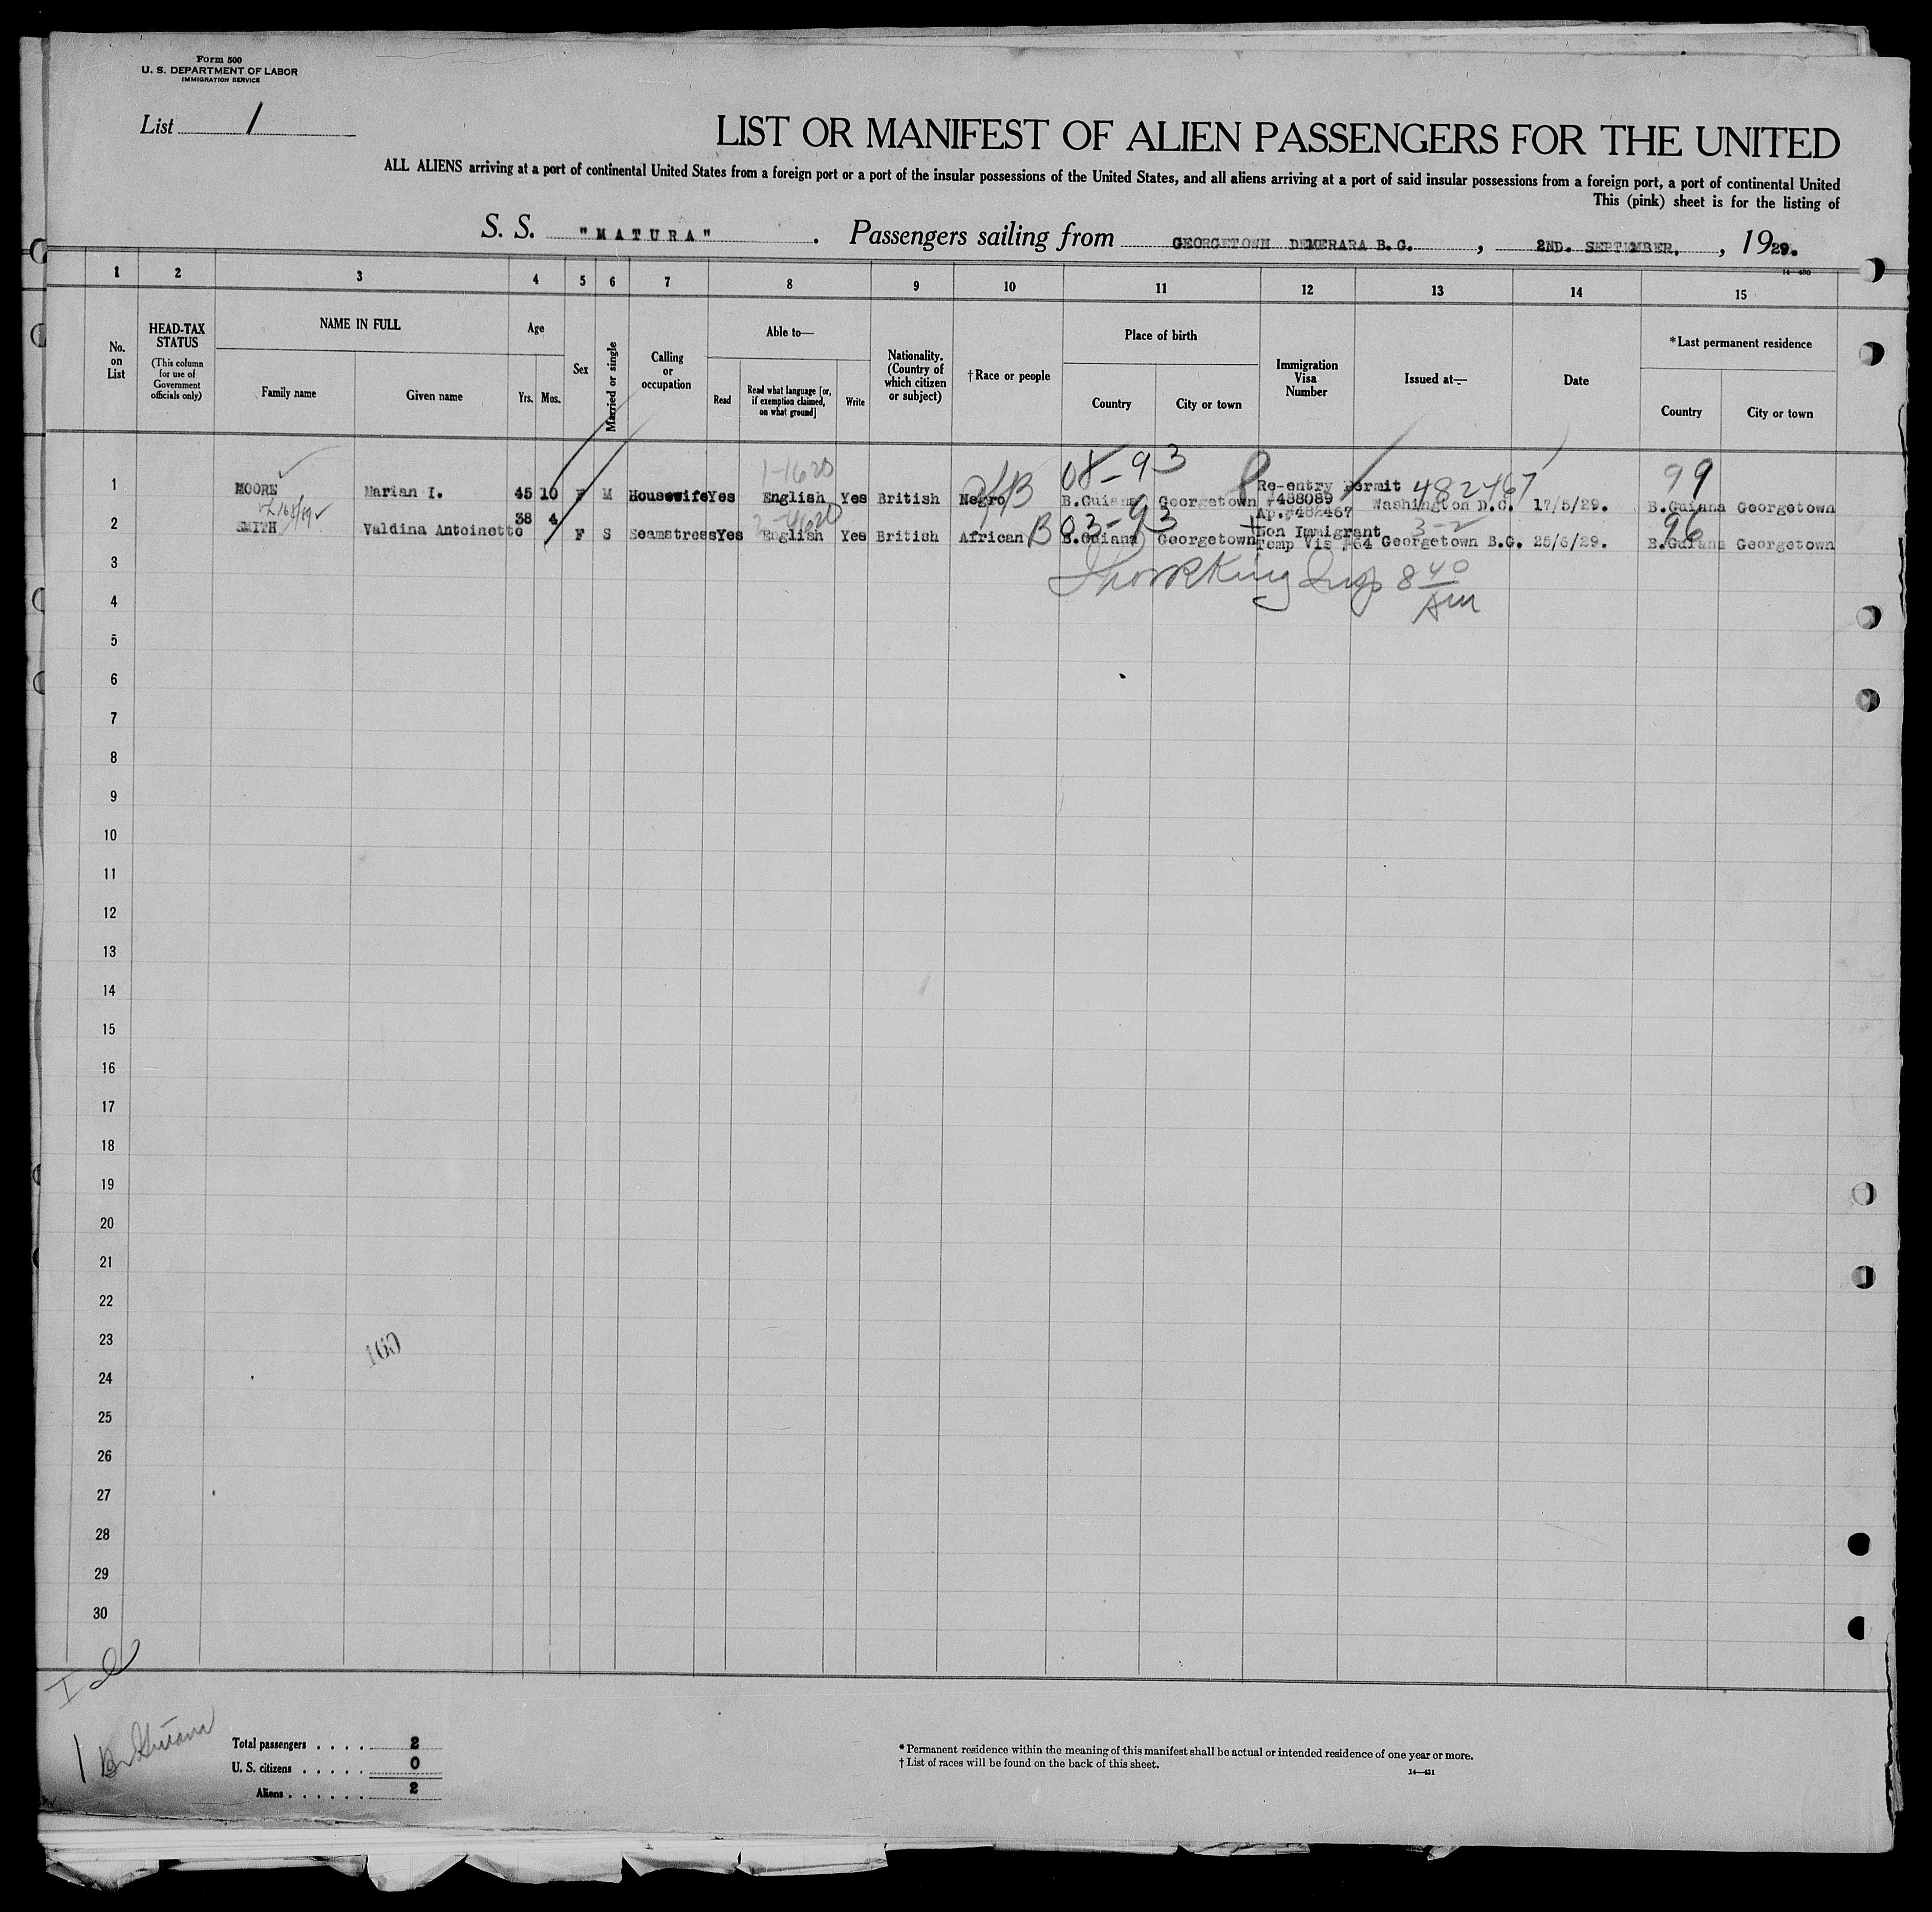 Form 500
U. S. DEPARTMENT OF LABOR
IMMIGRATION SERVICE
List 1
LIST OR MANIFEST OF ALIEN PASSENGERS FOR THE UNITED
ALL ALIENS arriving at a port of continental United States from a foreign port or a port of the insular possessions of the United States, and all aliens arriving at a port of said insular possessions from a foreign port, a port of continental United
This (pink) sheet is for the listing of
S. S. "MATURA". Passengers sailing from GEORGETOWN DEMERARA B.G., 2ND. SEPTEMBER., 1929.
14—430
1 2 3 4 5 6 7 8 9 10 11 12 13 14 15
No. on List
HEAD-TAX STATUS
(This column for use of Government officials only)
NAME IN FULL
Family name
Given name
Age
Yrs.
Mos.
Sex
Married or single
Calling or occupation
Able to—
Read
Read what language [or, if exemption claimed, on what ground]
Write
Nationality. (Country of which citizen or subject)
†Race or people
Place of birth
Country
City or town
Immigration Visa Number
Issued at—
Date
*Last permanent residence
Country
City or town
1-1620
08-93
482467
99
1 MOORE Marian I. 45 10 F M Housewife Yes English Yes British Negro B B.Guiana Georgetown Re-entry Permit #488089 Ap.#482467 Washington D.C. 17/5/29. B.Guiana Georgetown
03-93
3-2
96
2 SMITH Valdina Antoinette 38 4 F S Seamstress Yes English Yes British African B B.Guiana Georgetown Non Immigrant Temp Vis #64 Georgetown B.G. 25/6/29. B.Guiana Georgetown
3
King Insp 8 40 AM
4
5
6
7
8
9
10
11
12
13
14
15
16
17
18
19
20
21
22
23
160
24
25
26
27
28
29
30
1 Br Guiana
Total passengers . . . . 2
U. S. citizens . . . . . 0
Aliens . . . . . . 2
* Permanent residence within the meaning of this manifest shall be actual or intended residence of one year or more.
† List of races will be found on the back of this sheet.
14—431